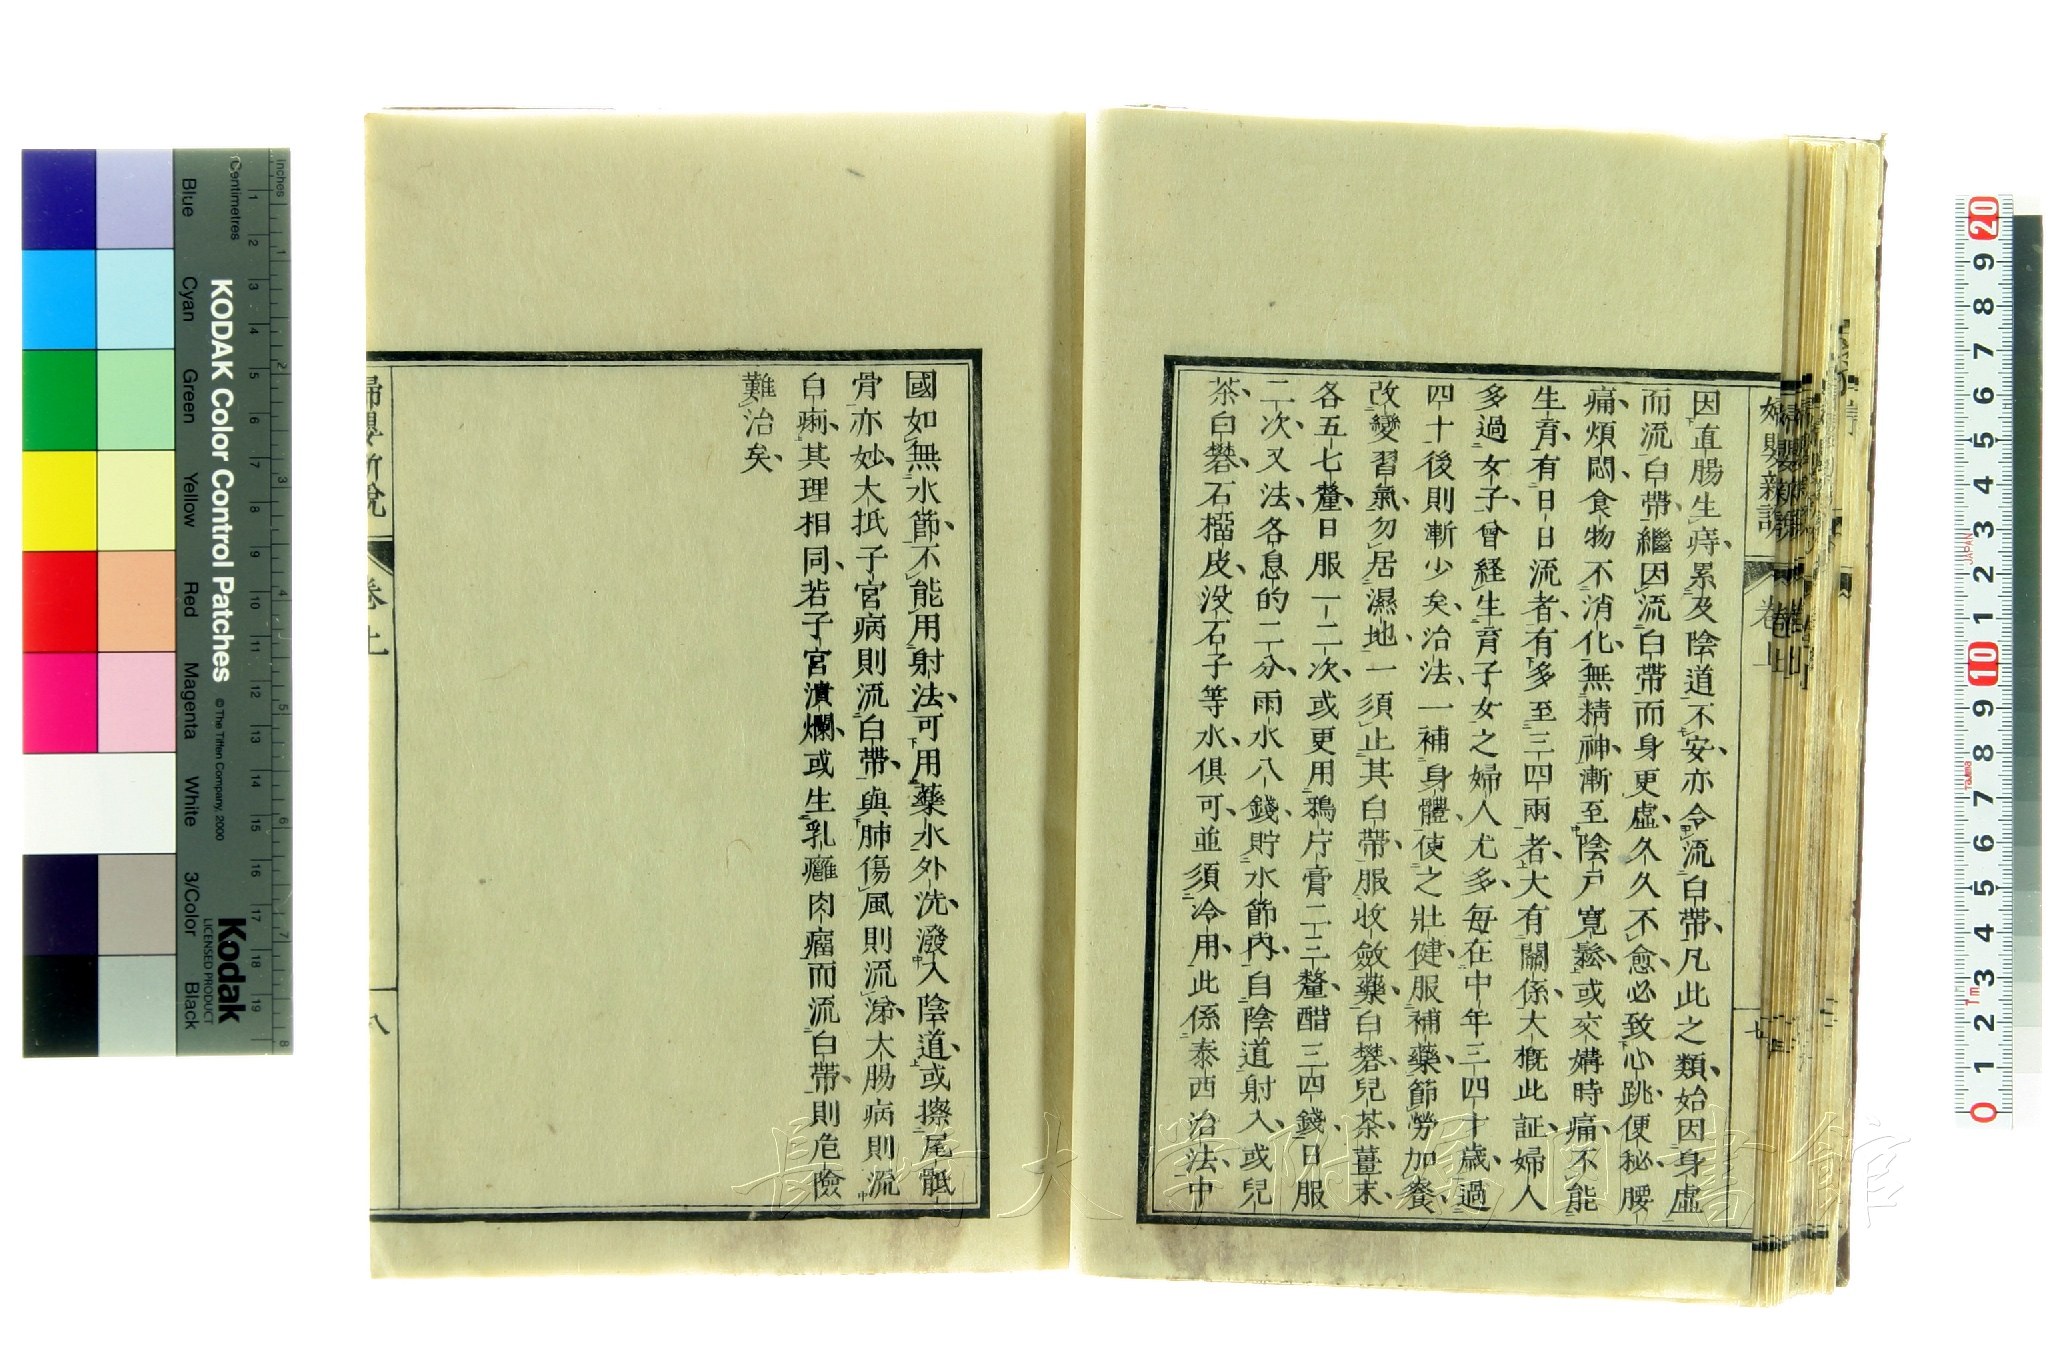 因直腸生痔、累及陰道不安、亦令流白帶、凡此之類、始因身虛
而流白帶、繼因流白帶而身更虛、久久不愈、必致心跳、便秘、腰
痛、煩悶、食物不消化、無精神、漸至陰戶寬鬆、或交媾時痛、不能
生育、有日日流者、有多至三四兩者、大有關係、大概此証、婦人
多過女子、曾経生育子女之婦人尤多、每在中年三四十歲、過
四十後則漸少矣、治法、一補身體、使之壯健、服補藥、節勞加餐、
改變習氣、勿居濕地、一須止其白帶、服收斂藥、白礬、兒茶、薑末、
各五七釐、日服一二次、或更用鴉片膏二三釐、醋三四錢、日服
二次、又法、各息的二分、雨水八錢、貯水節內、自陰道射入、或兒
茶、白礬、石榴皮、没石子等水、俱可、並須冷用、此係泰西治法、中
國如無水節、不能用射法、可用藥水外洗、潑入陰道、或擦尾骶
骨亦妙、大抵子宮病則流白帶、與肺傷風則流涕、大腸病則流
白痢、其理相同、若子宮潰爛、或生乳癰肉瘤而流白帶、則危險
難治矣、
婦嬰新說
卷上
七
八
KODAK Color Control Patches
© The Tiffen Company, 2000
Kodak
LICENSED PRODUCT
Inches
Centimetres
Blue
Cyan
Green
Yellow
Red
Magenta
White
3/Color
Black
JAPAN
長崎大学附属図書館